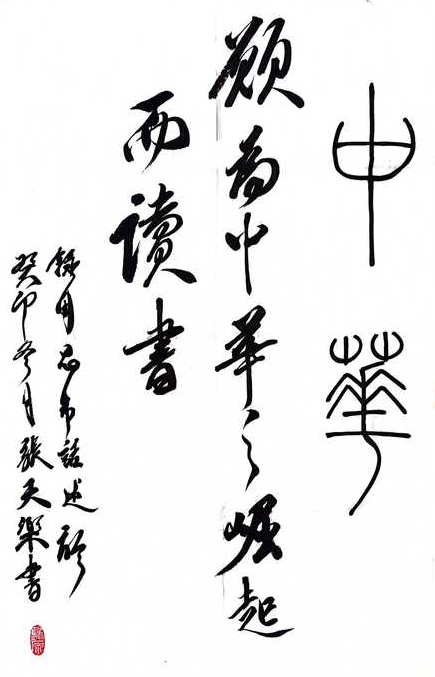 中華
願為中華之崛起
而讀書
錄周恩來話述
癸卯冬月張天樂書